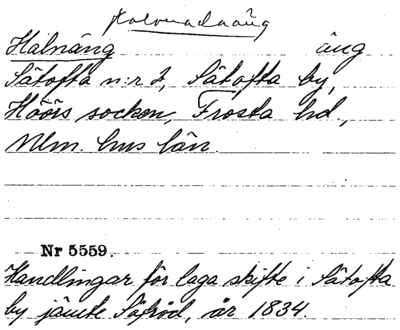 Halnäng äng
Sätofta n:r 2, Sätofta by,
Höörs socken, Frosta hd.,
Mlm. hus län.
Nr 5559.
Handlingar för laga skifte i Sätofta
by jämte Säfröd, år 1834